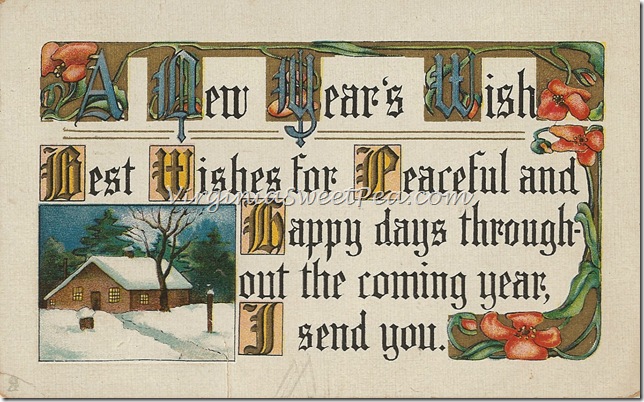 A New Year's Wish
Best Wishes for Peaceful and
VirginiaSweetPea.com
Happy days through-
out the coming year,
I send you.